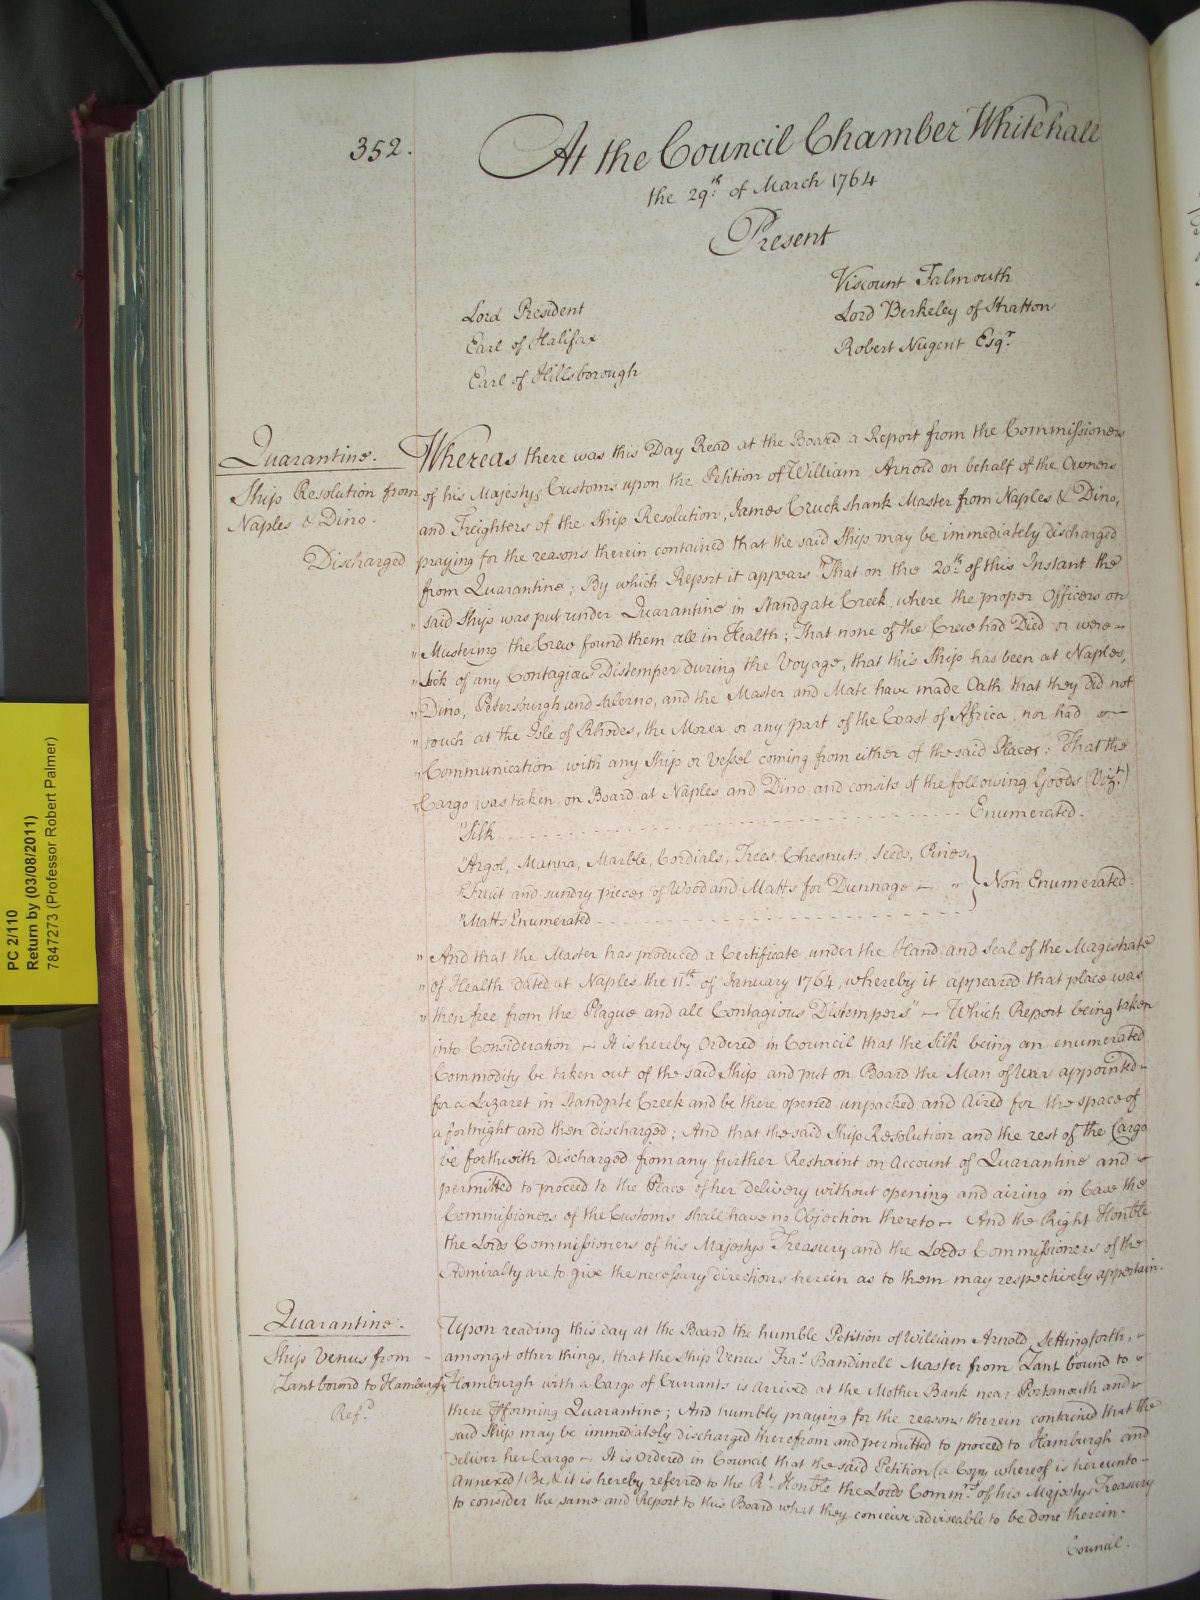 352.
At the Council Chamber Whitehall
the 29th of March 1764
Present
Lord President
Earl of Halifax
Earl of Hillsborough
Viscount Falmouth
Lord Berkeley of Stratton
Robert Nugent Esqr.
Quarantine.
Ship Resolution from
Naples & Dino.
Discharged
Whereas there was this Day Read at the Board a Report from the Commissioners
of his Majestys Customs upon the Petition of William Arnold on behalf of the Owners
and Freighters of the Ship Resolution, James Cruckshank Master from Naples & Dino,
praying for the reasons therein contained that the said Ship may be immediately discharged
from Quarantine; By which Report it appears "That on the 20th of this Instant the
" said Ship was put under Quarantine in Standgate Creek, where the proper Officers on
" Mustering the Crew found them all in Health; That none of the Crew had Died or were
" Sick of any Contagious Distemper during the Voyage, that this Ship has been at Naples,
" Dino, Petersburgh and Salerno, and the Master and Mate have made Oath that they did not
" touch at the Isle of Rhodes, the Morea or any part of the Coast of Africa, nor had
" Communication with any Ship or Vessel coming from either of the said Places: That the
" Cargo was taken on Board at Naples and Dino and consits of the following Goods (Vizt.)
"Silk - - - Enumerated.
"Argol, Manna, Marble, Cordials, Trees, Chestnuts, Seeds, Pines,
"Fruit and sundry pieces of Wood and Matts for Dunnage - " Non Enumerated.
"Matts Enumerated - - -
" And that the Master has produced a Certificate under the Hand and Seal of the Magistrate
" of Health dated at Naples the 11th of January 1764, whereby it appeared that place was
" then free from the Plague and all Contagious Distempers" - Which Report being taken
into Consideration - It is hereby Ordered in Council that the Silk being an enumerated
Commodity be taken out of the said Ship and put on Board the Man of War appointed
for a Lazaret in Standgate Creek and be there opened unpacked and Aired for the space of
a fortnight and then discharged; And that the said Ship Resolution and the rest of the Cargo
be forthwith discharged from any further Restraint on Account of Quarantine and
permitted to proceed to the Place of her delivery without opening and airing in Case the
Commissioners of the Customs shall have no Objection thereto - And the Right Honble
the Lords Commissioners of his Majestys Treasury and the Lords Commissioners of the
Admiralty are to give the necessary directions herein as to them may respectively appertain.
Quarantine.
Ship Venus from
Zant bound to Hamburgh
Refd.
Upon reading this day at the Board the humble Petition of William Arnold, setting forth,
amongst other things, that the Ship Venus Fras. Bandinell Master from Zant bound to
Hamburgh with a Cargo of Currants is arrived at the Mother Bank near Portsmouth and
there pforming Quarantine; And humbly praying for the reasons therein contained that the
said Ship may be immediately discharged therefrom and permitted to proceed to Hamburgh and
deliver her Cargo - It is Ordered in Council that the said Petition (a Copy whereof is hereunto
Annexed) Be, & it is hereby referred to the Rt. Honble the Lords Commrs. of his Majestys Treasury
to consider the same and Report to this Board what they conceive adviseable to be done therein.
Council.
PC 2/110
Return by (03/08/2011)
7847273 (Professor Robert Palmer)